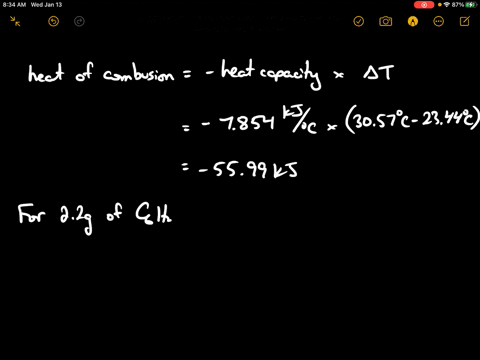 8:34 AM Wed Jan 13
87%
heat of combusion = - heat capacity × ΔT
= - 7.854 kJ/°C × (30.57°C - 23.44°C)
= - 55.99 kJ
For 2.2g of C6H